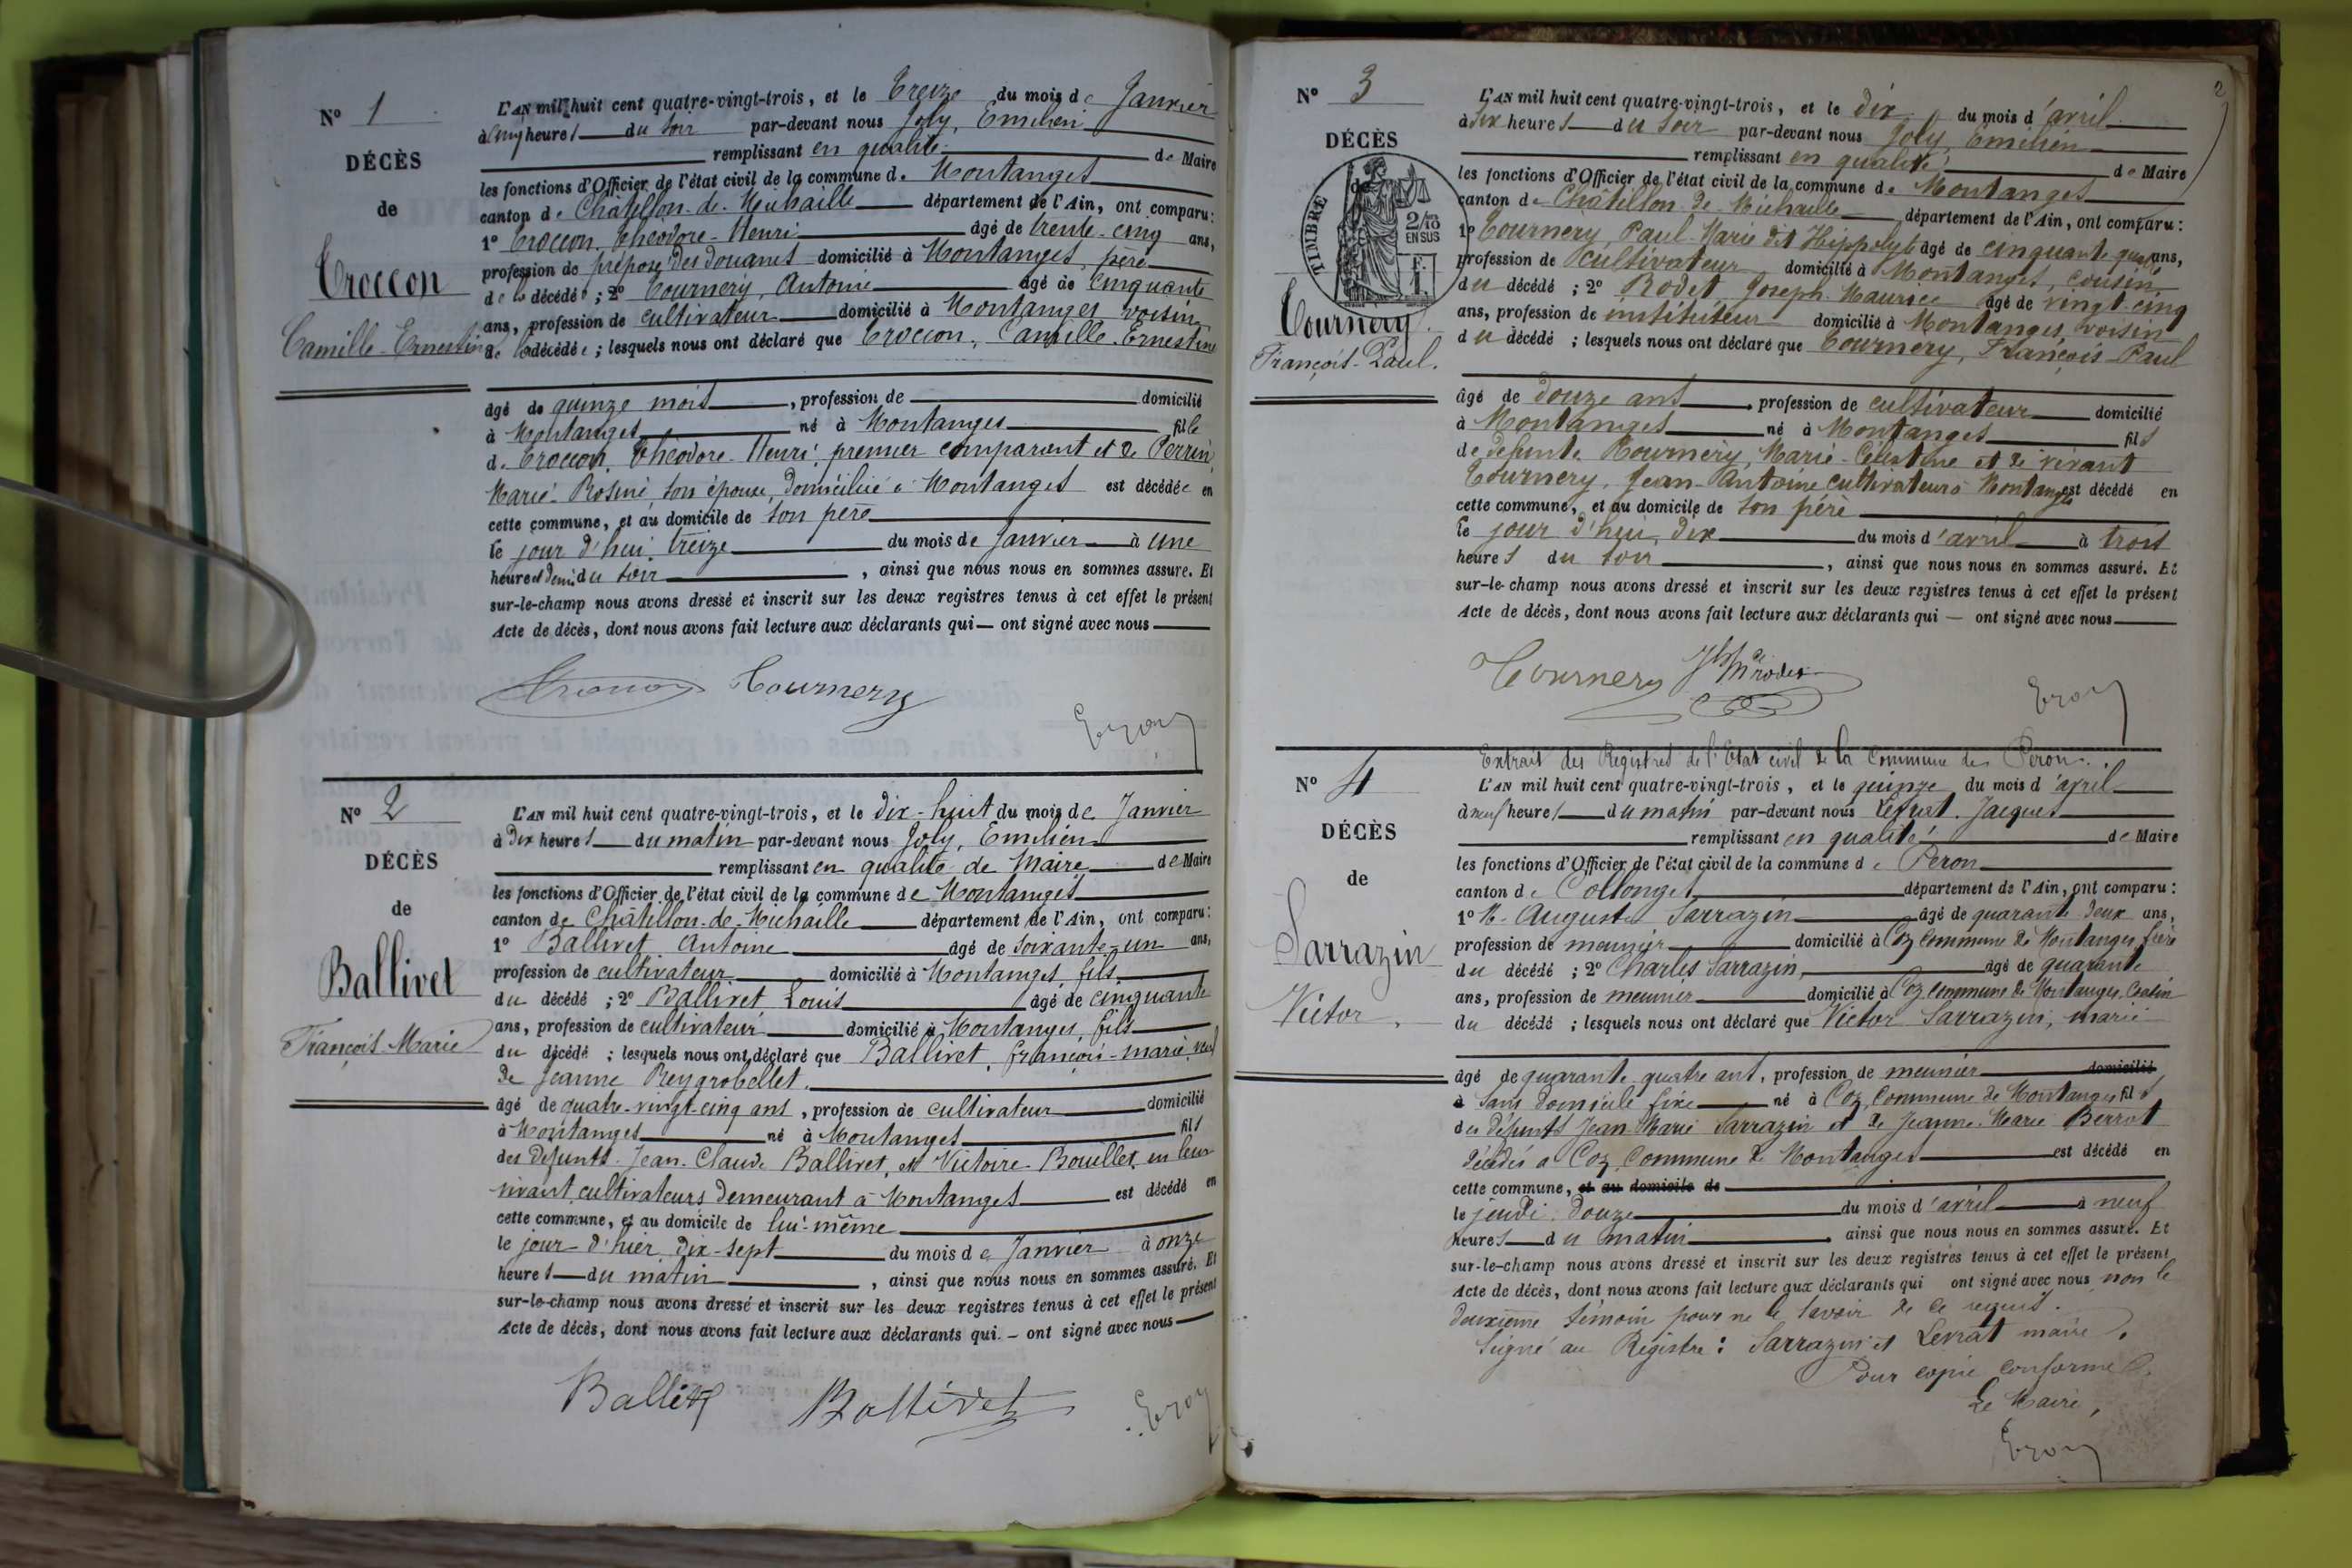 N° 1
DÉCÈS
de
Croccon
Camille-Ernestine
L'AN mil huit cent quatre-vingt-trois, et le treize du mois de Janvier
à cinq heures du soir par-devant nous Joly, Emilien
remplissant en qualité de Maire
les fonctions d'Officier de l'état civil de la commune de Montanges
canton de Châtillon-de-Michaille département de l'Ain, ont comparu :
1° Croccon, Théodore-Henri âgé de trente-cinq ans,
profession de préposé des douanes domicilié à Montanges, père
de la décédée ; 2° Tournery, Antoine âgé de cinquante
ans, profession de cultivateur domicilié à Montanges voisin
de la décédée ; lesquels nous ont déclaré que Croccon, Camille-Ernestine
âgé de quinze mois, profession de domicilié
à Montanges né à Montanges fille
de Croccon, Théodore-Henri, premier comparant et de Perrin,
Marie-Rosine, son épouse, domiciliée à Montanges est décédée en
cette commune, et au domicile de son père
le jour d'hui treize du mois de Janvier à une
heure et demi du soir, ainsi que nous nous en sommes assuré. Et
sur-le-champ nous avons dressé et inscrit sur les deux registres tenus à cet effet le présent
Acte de décès, dont nous avons fait lecture aux déclarants qui — ont signé avec nous
Tournery
N° 2
DÉCÈS
de
Ballivet
François-Marie
L'AN mil huit cent quatre-vingt-trois, et le dix-huit du mois de Janvier
à dix heures du matin par-devant nous Joly, Emilien
remplissant en qualité de Maire de Maire
les fonctions d'Officier de l'état civil de la commune de Montanges
canton de Châtillon-de-Michaille département de l'Ain, ont comparu :
1° Ballivet Antoine âgé de soixante-un ans,
profession de cultivateur domicilié à Montanges, fils
du décédé ; 2° Ballivet Louis âgé de cinquante
ans, profession de cultivateur domicilié à Montanges, fils
du décédé ; lesquels nous ont déclaré que Ballivet, françois-marie, veuf
de Jeanne Reygrobellet,
âgé de quatre-vingt-cinq ans, profession de cultivateur domicilié
à Montanges né à Montanges fils
des défunts Jean-Claude Ballivet, et Victoire Bouillet, en leur
vivant cultivateurs demeurant à Montanges est décédé en
cette commune, et au domicile de lui-même
le jour-d'hier dix-sept du mois de Janvier à onze
heures du matin, ainsi que nous nous en sommes assuré. Et
sur-le-champ nous avons dressé et inscrit sur les deux registres tenus à cet effet le présent
Acte de décès, dont nous avons fait lecture aux déclarants qui — ont signé avec nous
Ballivet Ballivet
2
N° 3
DÉCÈS
de
TIMBRE
2/10
EN SUS
Tournery
François-Paul.
L'AN mil huit cent quatre-vingt-trois, et le dix du mois d'avril
à six heures du soir par-devant nous Joly, Emilien
remplissant en qualité de Maire
les fonctions d'Officier de l'état civil de la commune de Montanges
canton de Châtillon-de-Michaille département de l'Ain, ont comparu :
1° Tournery, Paul-Marie dit Hippolyte âgé de cinquante quatre ans,
profession de cultivateur domicilié à Montanges, cousin
du décédé ; 2° Rodet Joseph-Maurice âgé de vingt-cinq
ans, profession de instituteur domicilié à Montanges, voisin
du décédé ; lesquels nous ont déclaré que Tournery, François-Paul
âgé de douze ans, profession de cultivateur domicilié
à Montanges né à Montanges fils
de défunte Tournery, Marie-Célestine et de vivant
Tournery, Jean-Antoine cultivateur à Montanges est décédé en
cette commune, et au domicile de son père
le jour d'hui, dix du mois d'avril à trois
heures du soir, ainsi que nous nous en sommes assuré. Et
sur-le-champ nous avons dressé et inscrit sur les deux registres tenus à cet effet le présent
Acte de décès, dont nous avons fait lecture aux déclarants qui — ont signé avec nous
Tournery
Extrait des Registres de l'Etat civil de la Commune de Peron.
N° 4
DÉCÈS
de
Sarrazin
Victor
L'AN mil huit cent quatre-vingt-trois, et le quinze du mois d'avril
à neuf heures du matin par-devant nous Levrat Jacques
remplissant en qualité de Maire
les fonctions d'Officier de l'état civil de la commune de Peron
canton de Collonges département de l'Ain, ont comparu :
1° M. Auguste Sarrazin âgé de quarante deux ans,
profession de meunier domicilié à Coz commune de Montanges, frère
du décédé ; 2° Charles Sarrazin, âgé de quarante
ans, profession de meunier domicilié à Coz commune de Montanges, Cousin
du décédé ; lesquels nous ont déclaré que Victor Sarrazin, marié
âgé de quarante-quatre ans, profession de meunier domicilié
à Sans domicile fixe né à Coz, Commune de Montanges fils
des défunts Jean-Marie Sarrazin et de Jeanne-Marie Berrot
décédés à Coz, Commune de Montanges est décédé en
cette commune, et au domicile de
le jeudi douze du mois d'avril à neuf
heures du matin, ainsi que nous nous en sommes assuré. Et
sur-le-champ nous avons dressé et inscrit sur les deux registres tenus à cet effet le présent
Acte de décès, dont nous avons fait lecture aux déclarants qui ont signé avec nous non le
deuxième témoin pour ne le savoir de ce requis.
Signé au Registre : Sarrazin et Levrat maire.
Pour copie conforme
Le Maire,